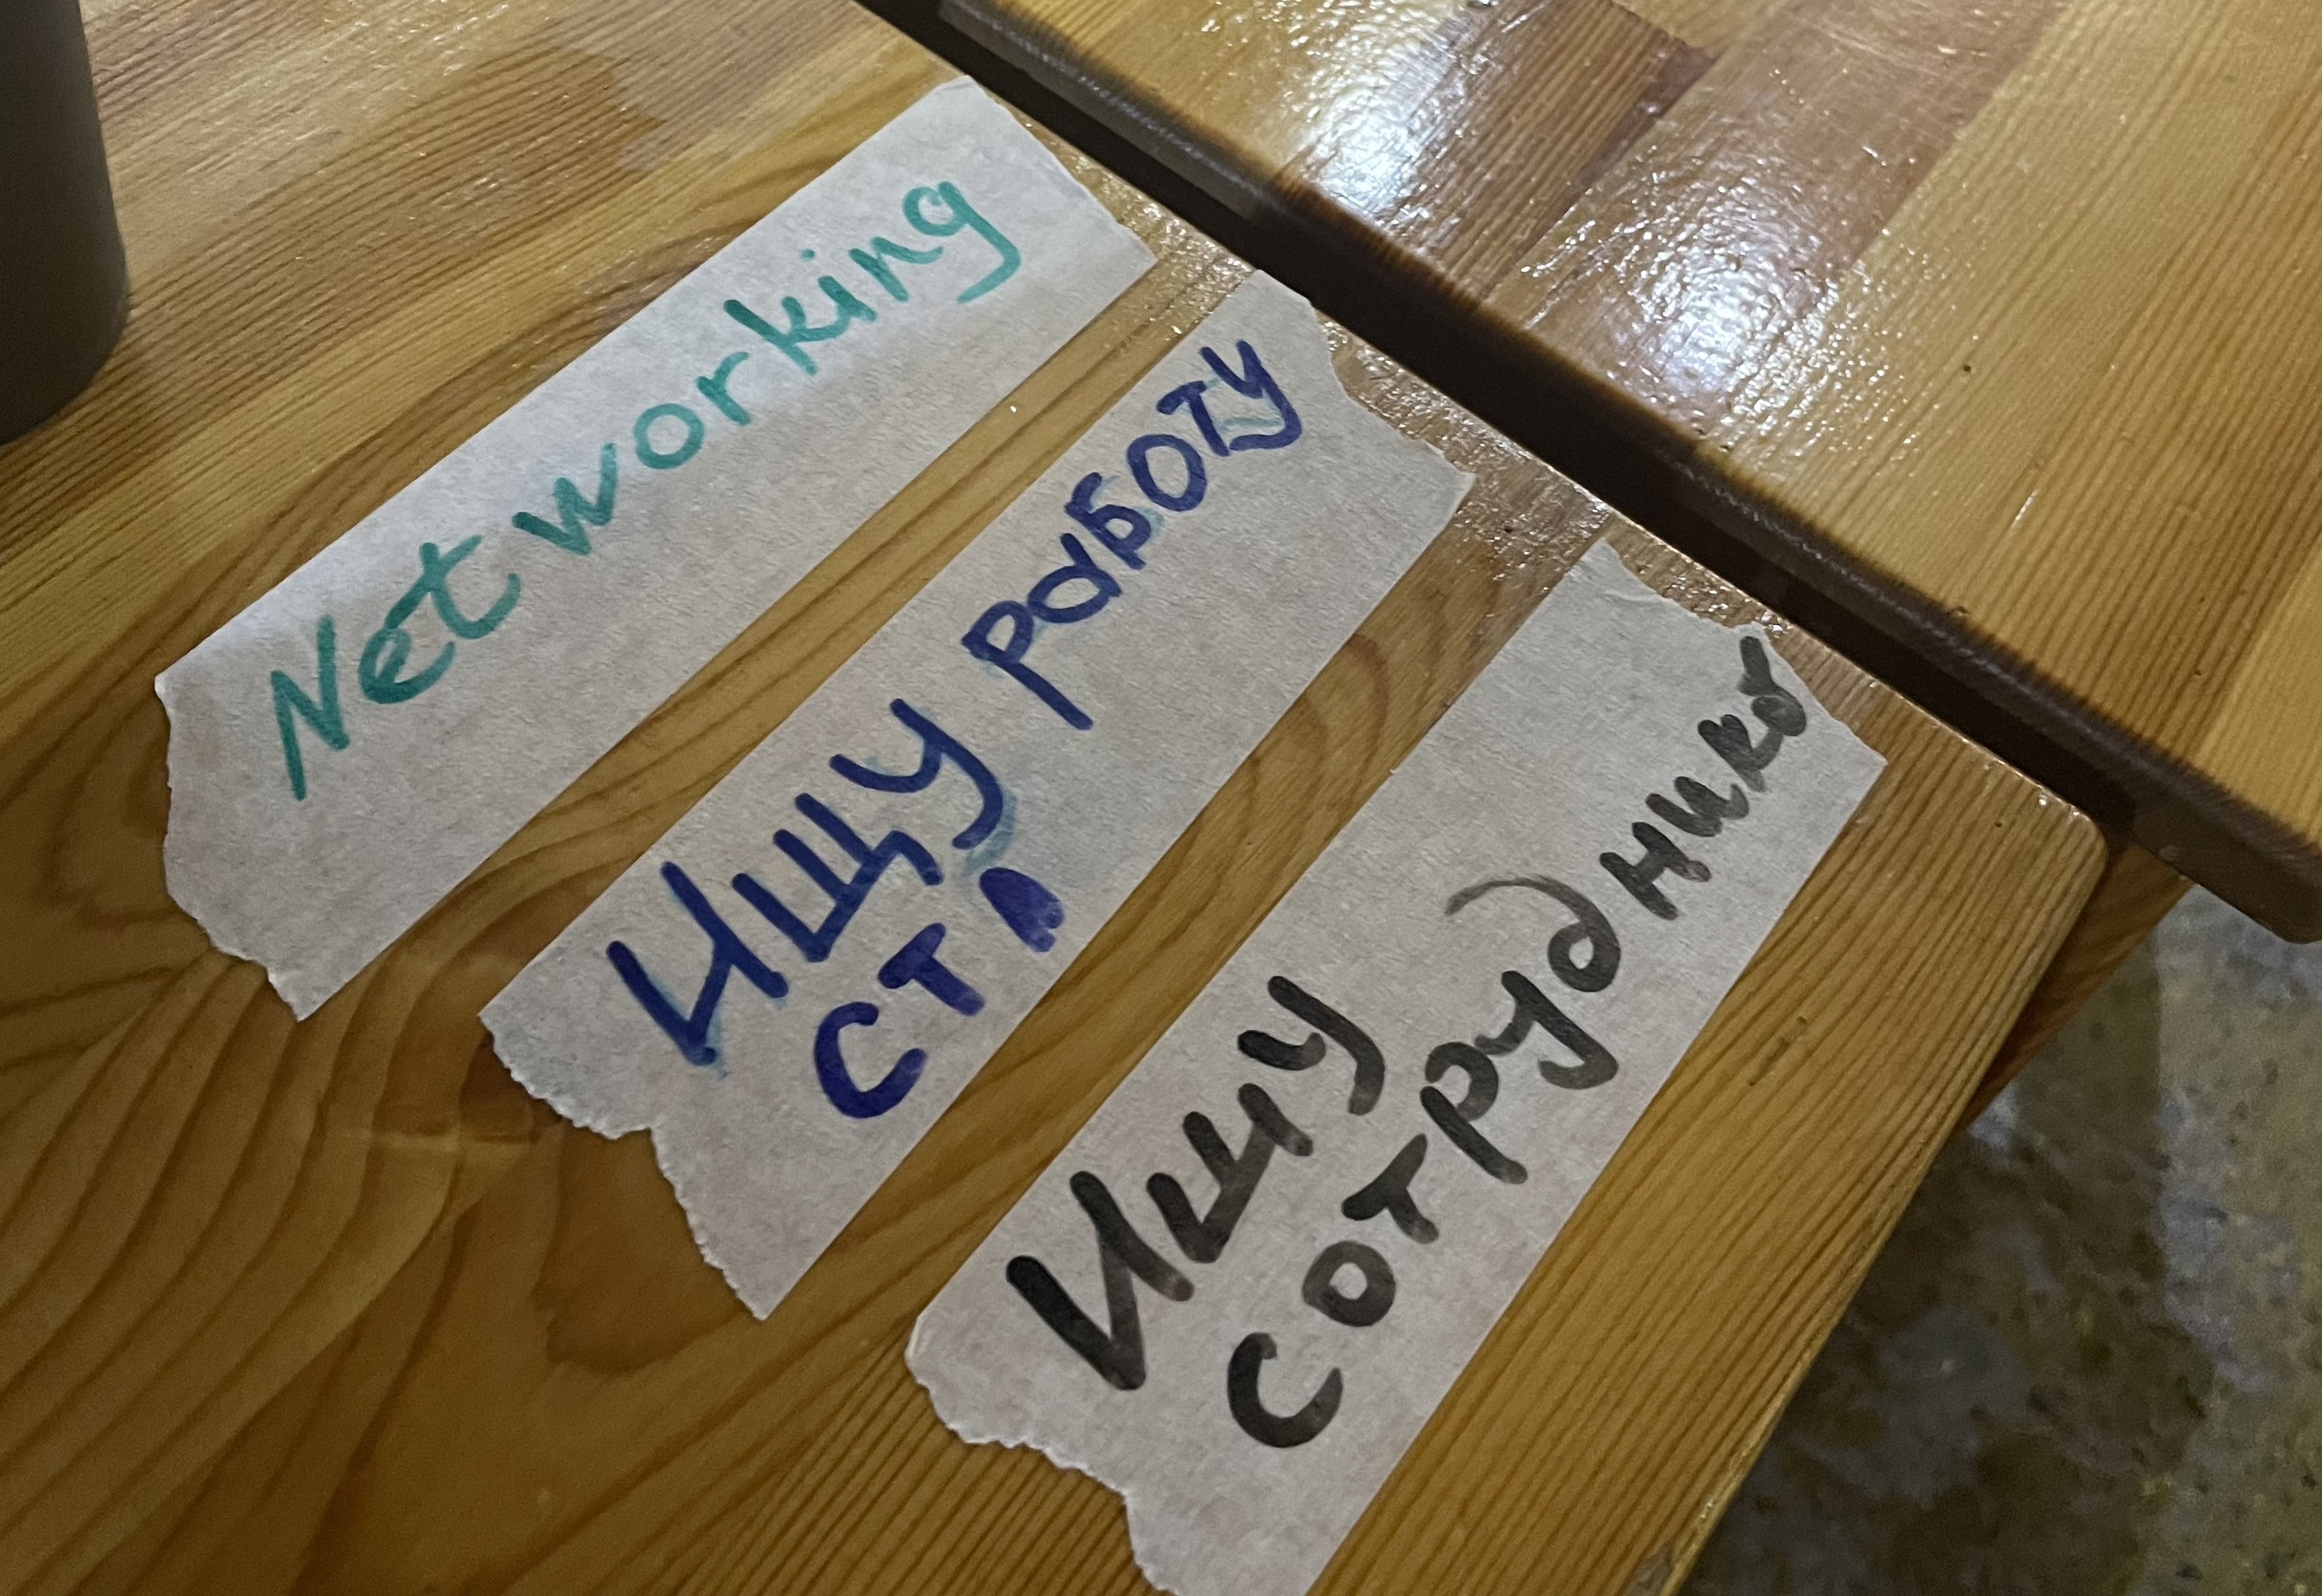 Networking
Ищу работу
ст
Ищу
сотрудника